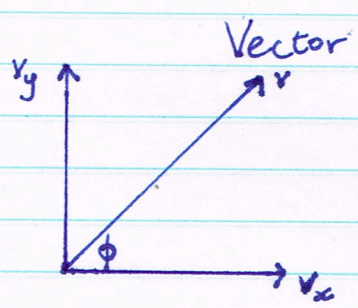 Vector
v_y
v
ϕ
v_x